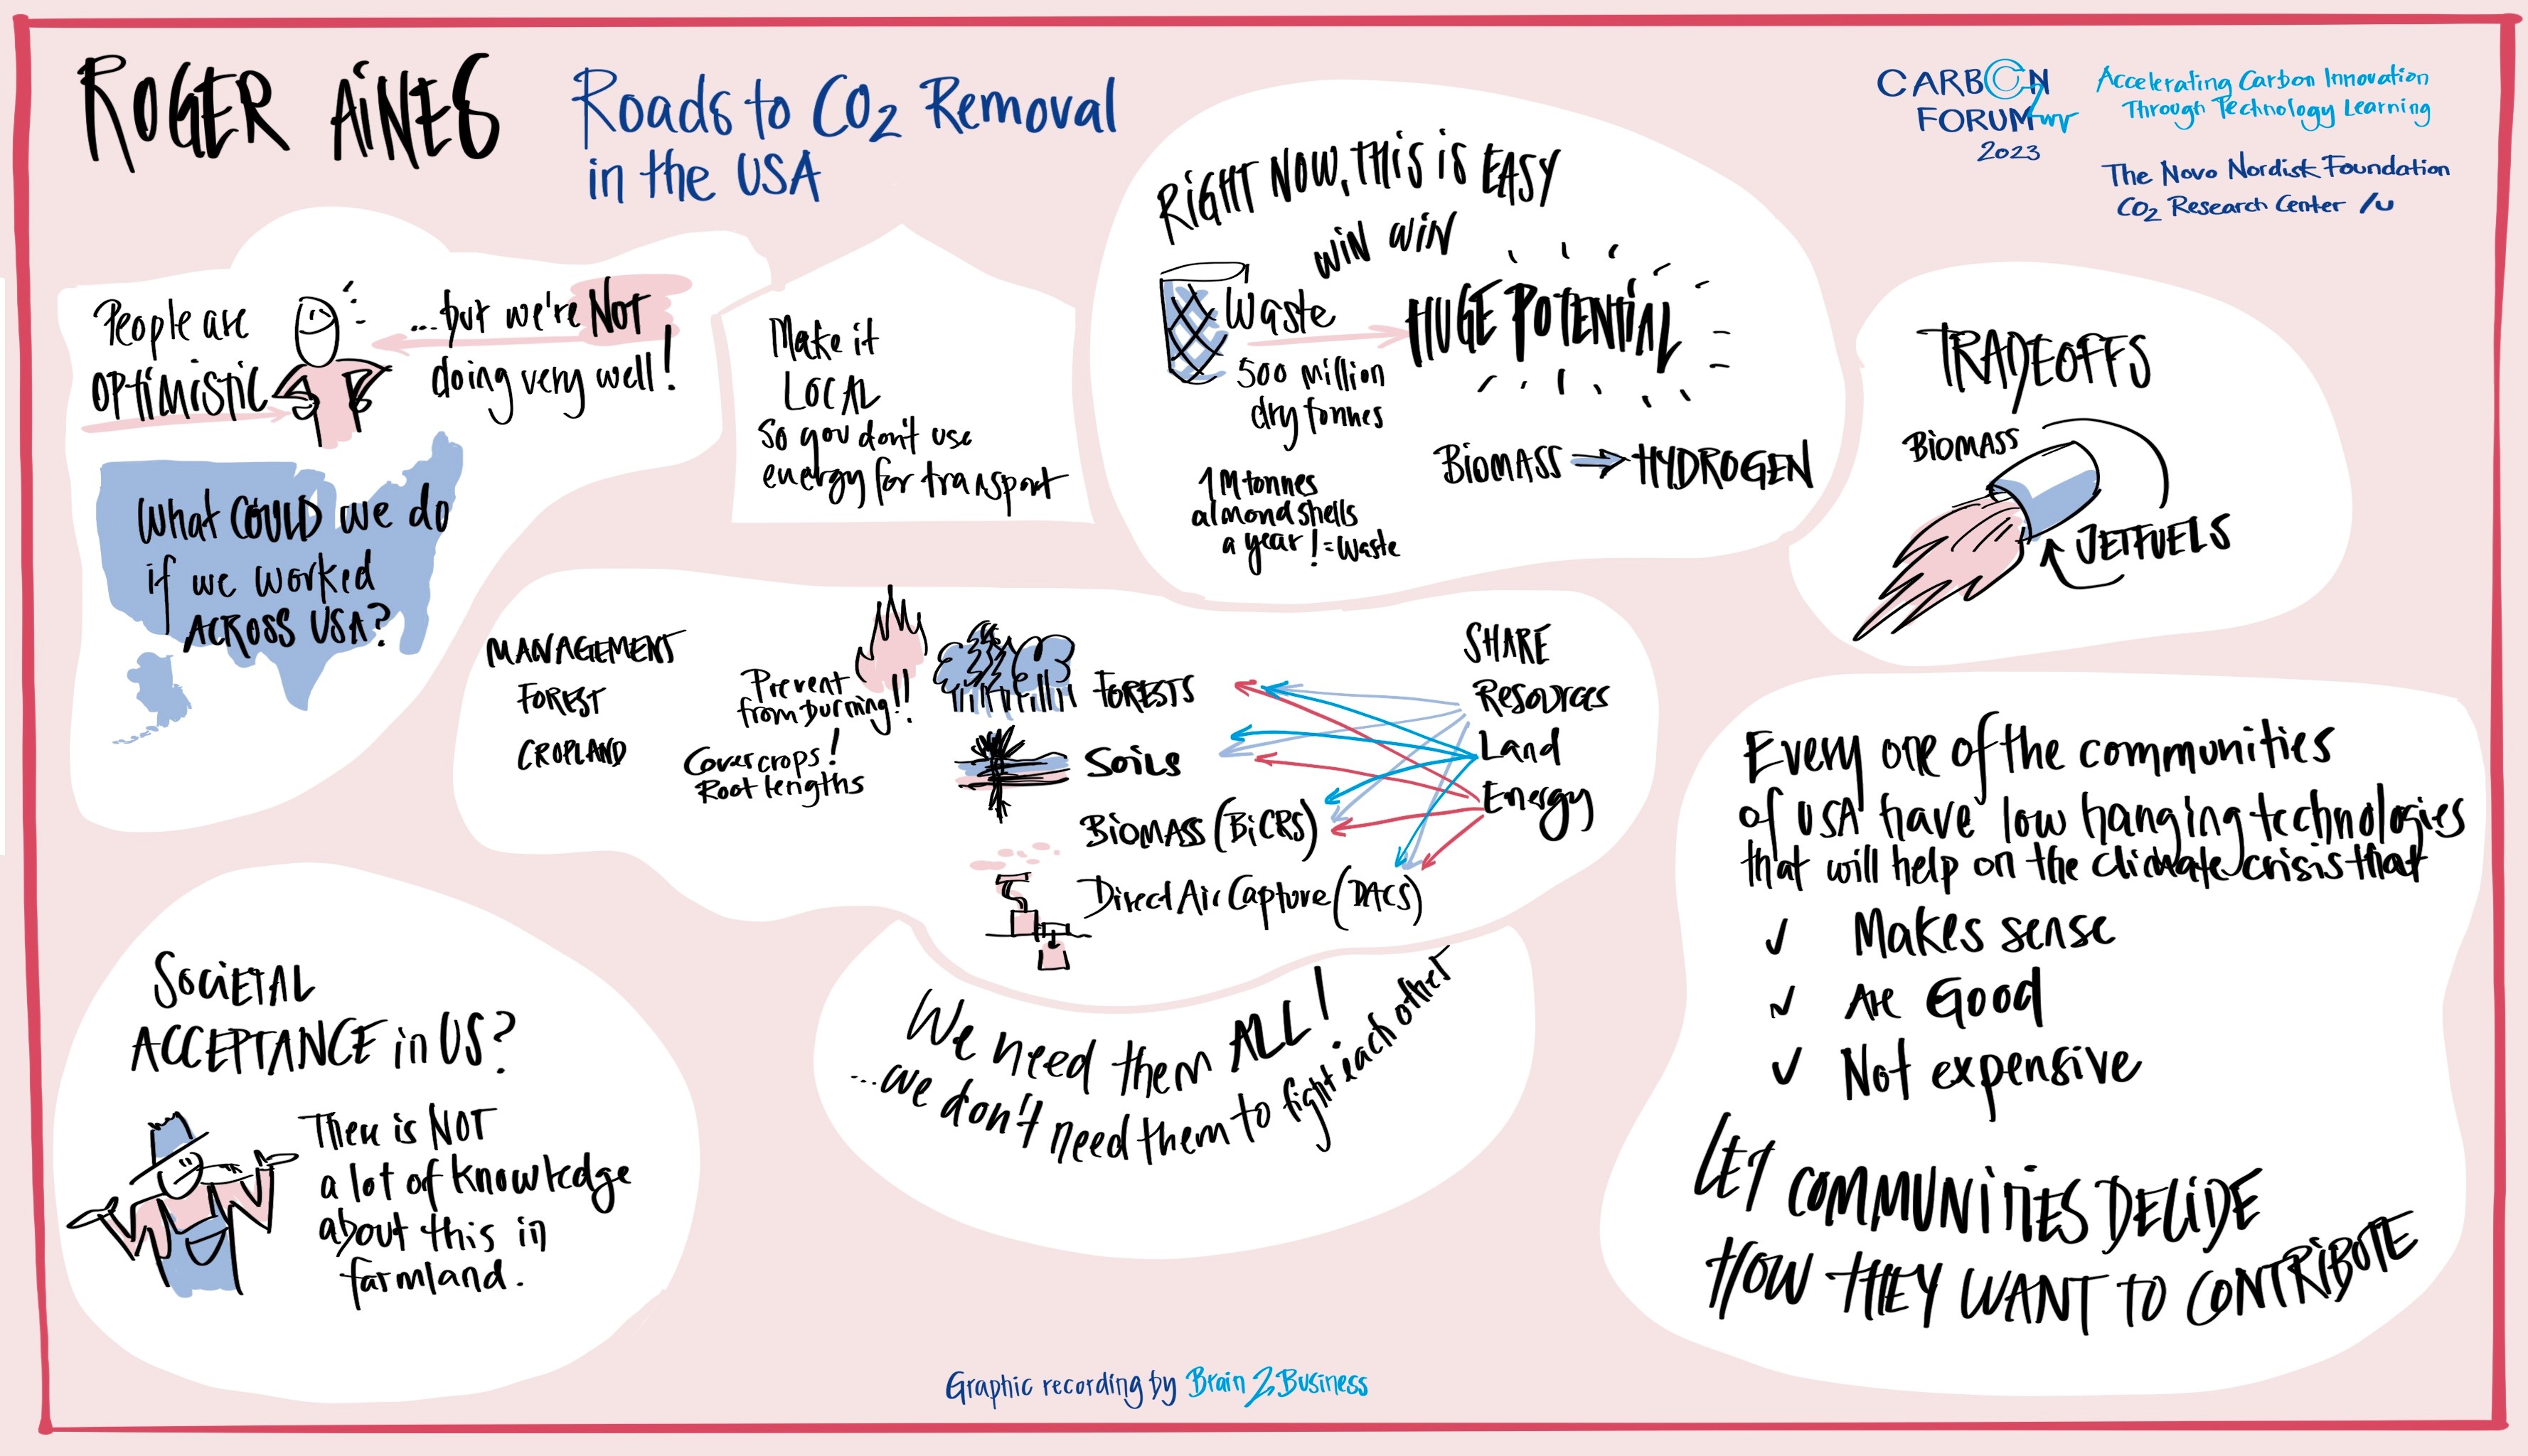 ROGER AINES
Roads to CO2 Removal
in the USA
CARBON
FORUM
2023
Accelerating Carbon Innovation
Through Technology Learning
The Novo Nordisk Foundation
CO2 Research Center /u
People are
OPTIMISTIC
...but we're NOT
doing very well!
What COULD we do
if we worked
ACROSS USA?
Make it
LOCAL
So you don't use
energy for transport
RIGHT NOW, THIS IS EASY
WIN WIN
Waste
500 million
dry tonnes
HUGE POTENTIAL
1 M tonnes
almond shells
a year! = Waste
BIOMASS → HYDROGEN
TRADEOFFS
BIOMASS
JETFUELS
MANAGEMENT
FOREST
CROPLAND
Prevent
from burning!!
Cover crops!
Root lengths
FORESTS
Soils
BIOMASS (BiCRS)
Direct Air Capture (DACS)
SHARE
Resources
Land
Energy
We need them ALL!
...we don't need them to fight each other
SOCIETAL
ACCEPTANCE in US?
There is NOT
a lot of knowledge
about this in
farmland.
Every one of the communities
of USA have low hanging technologies
that will help on the climate crisis that
✓ Makes sense
✓ Are Good
✓ Not expensive
LET COMMUNITIES DECIDE
HOW THEY WANT TO CONTRIBUTE
Graphic recording by Brain2Business